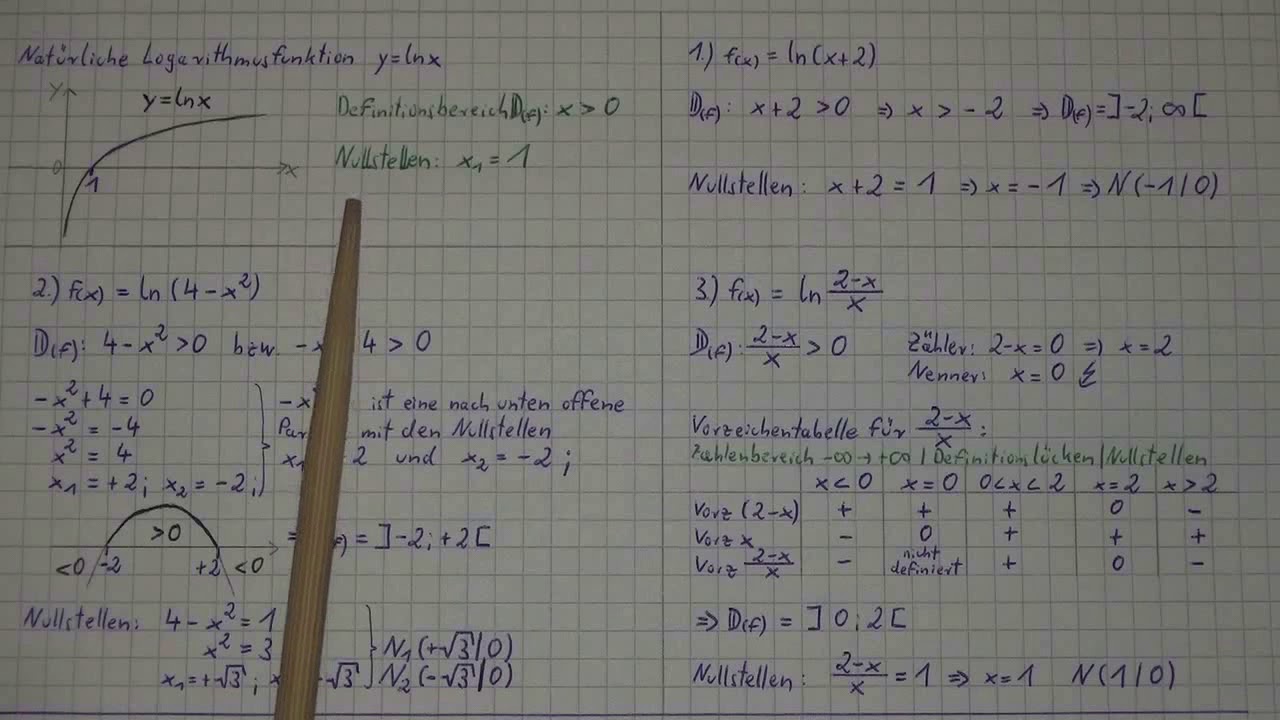 Natürliche Logarithmusfunktion y=lnx
y
y=lnx
0
1
x
Definitionsbereich D(f): x > 0
Nullstellen: x₁ = 1
1.) f(x) = ln(x+2)
D(f): x+2 > 0 ⇒ x > -2 ⇒ D(f) = ]-2; ∞[
Nullstellen: x+2 = 1 ⇒ x = -1 ⇒ N(-1|0)
2.) f(x) = ln(4-x²)
D(f): 4-x² > 0 bzw. -x 4 > 0
-x²+4 = 0
-x² = -4
x² = 4
x₁ = +2; x₂ = -2;
-x ist eine nach unten offene
mit den Nullstellen
2 und x₂ = -2;
>0
<0 -2 +2 <0
= ]-2; +2[
Nullstellen: 4-x² = 1
x² = 3
x₁ = +√3; -√3
N₁(+√3|0)
N₂(-√3|0)
3.) f(x) = ln (2-x)/x
D(f): (2-x)/x > 0
Zähler: 2-x = 0 ⇒ x = 2
Nenner: x = 0 ↯
Vorzeichentabelle für (2-x)/x:
Zahlenbereich -∞ → +∞ | Definitionslücken | Nullstellen
x<0 x=0 0<x<2 x=2 x>2
Vorz (2-x) + + + 0 -
Vorz x - 0 + + +
Vorz (2-x)/x - nicht definiert + 0 -
⇒ D(f) = ]0; 2[
Nullstellen: (2-x)/x = 1 ⇒ x = 1 N(1|0)